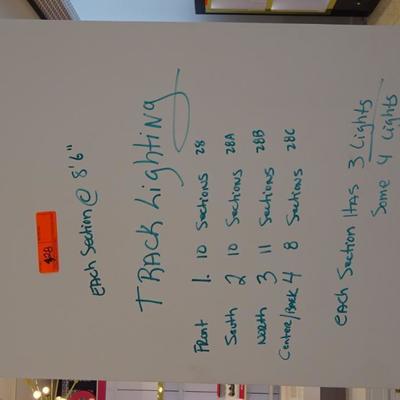 $28
EACH Section @ 8'6"
TRACK Lighting
FRONT 1. 10 Sections 28
South 2 10 Sections 28A
North 3 11 Sections 28B
Center/Back 4 8 Sections 28C
EACH Section HAS 3 Lights
Some 4 Lights